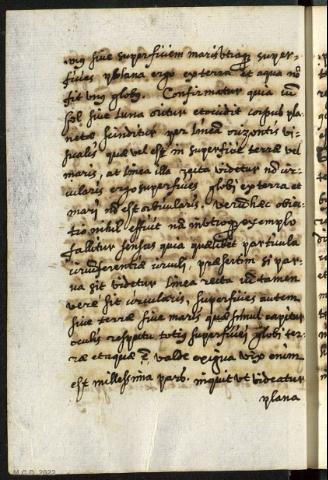 sive superficiem maris utroque super-
ficies plana ergo ex terra et aqua nō
fit unus globus. Confirmatur quia cū
sol sive Luna oritur et occidit corpus pla-
neta scinditur per lineā orizontis vi-
sualis quæ vel est in superficie terræ vel
maris, at linea illa recta videtur nō cir-
cularis ergo superficies globi ex terra et
mari nō est orbicularis. Verū hæc obie-
ctio nihil efficit nā in utroque exemplo
fallitur sensus quia quælibet particula
circumferentiæ circuli, præsertim si par-
va sit videtur linea recta cū tamen
vere sit circularis, superficies autem
sive terræ sive maris quæ simul capitur
oculis respectu totius superficiei globi ter-
ræ et aquæ ē valde exigua vix enim
est millessima pars. inquit ut videatur
plana
M.C.D. 2022